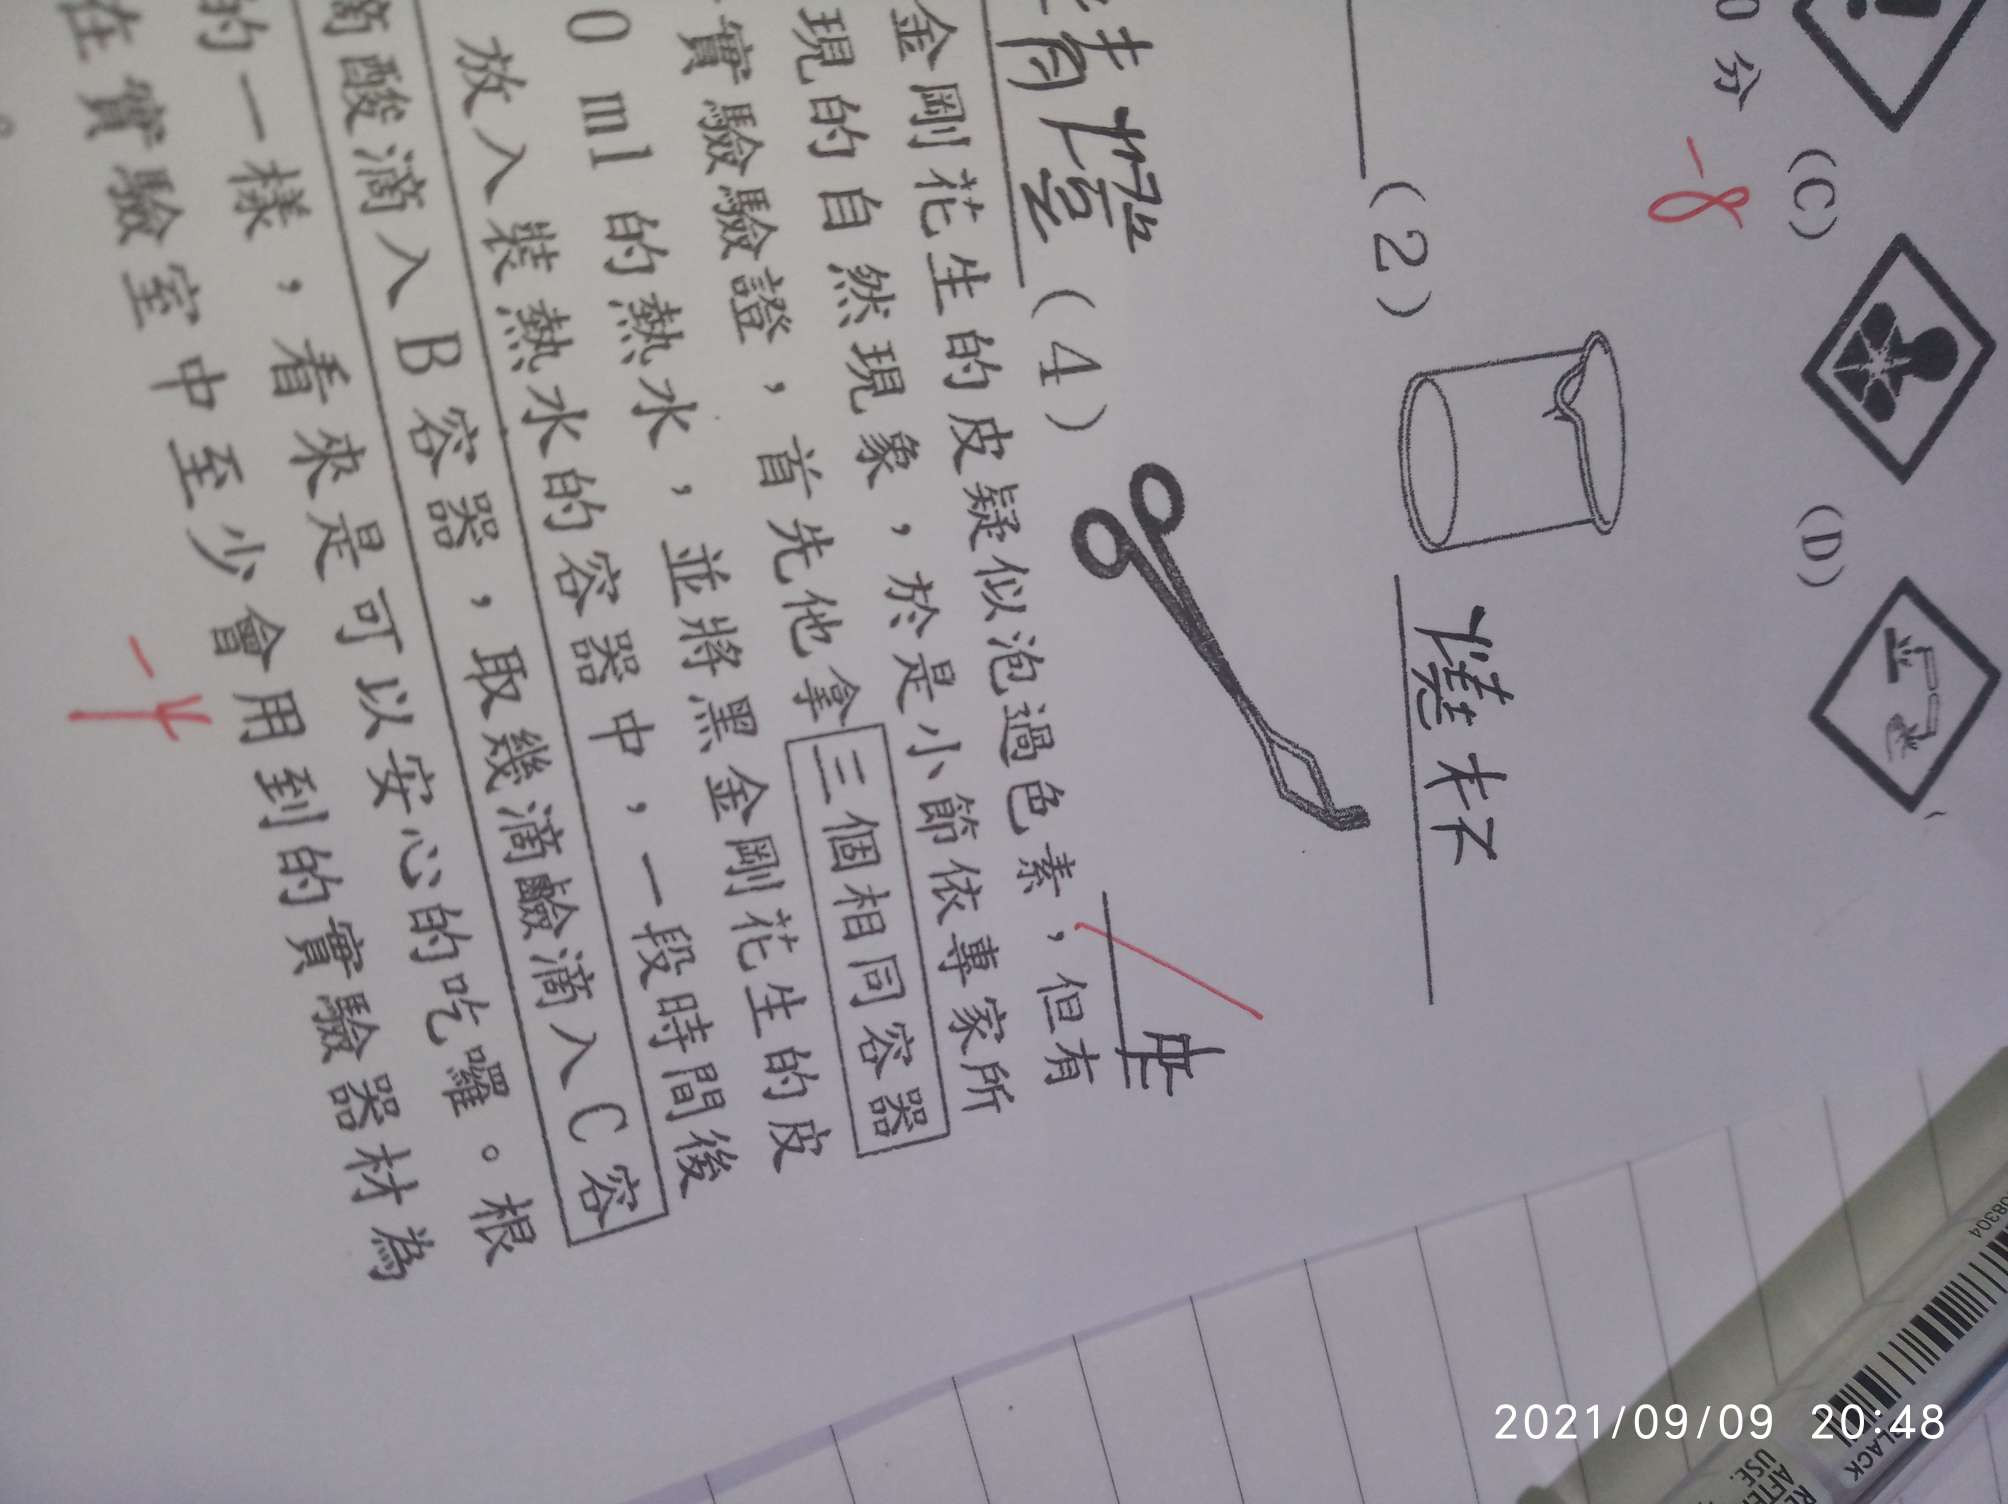 0分 -8 (C) (D)
(2) 燒杯
(4)
金剛花生的皮疑似泡過色素，但有
現的自然現象，於是小節依專家所
實驗驗證，首先他拿三個相同容器
0 ml 的熱水，並將黑金剛花生的皮
放入裝熱水的容器中，一段時間後
滴酸滴入B容器，取幾滴鹼滴入C容
的一樣，看來是可以安心的吃囉。根
在實驗室中至少會用到的實驗器材為
-4
08304
BLACK
AFTE
USE.
2021/09/09 20:48